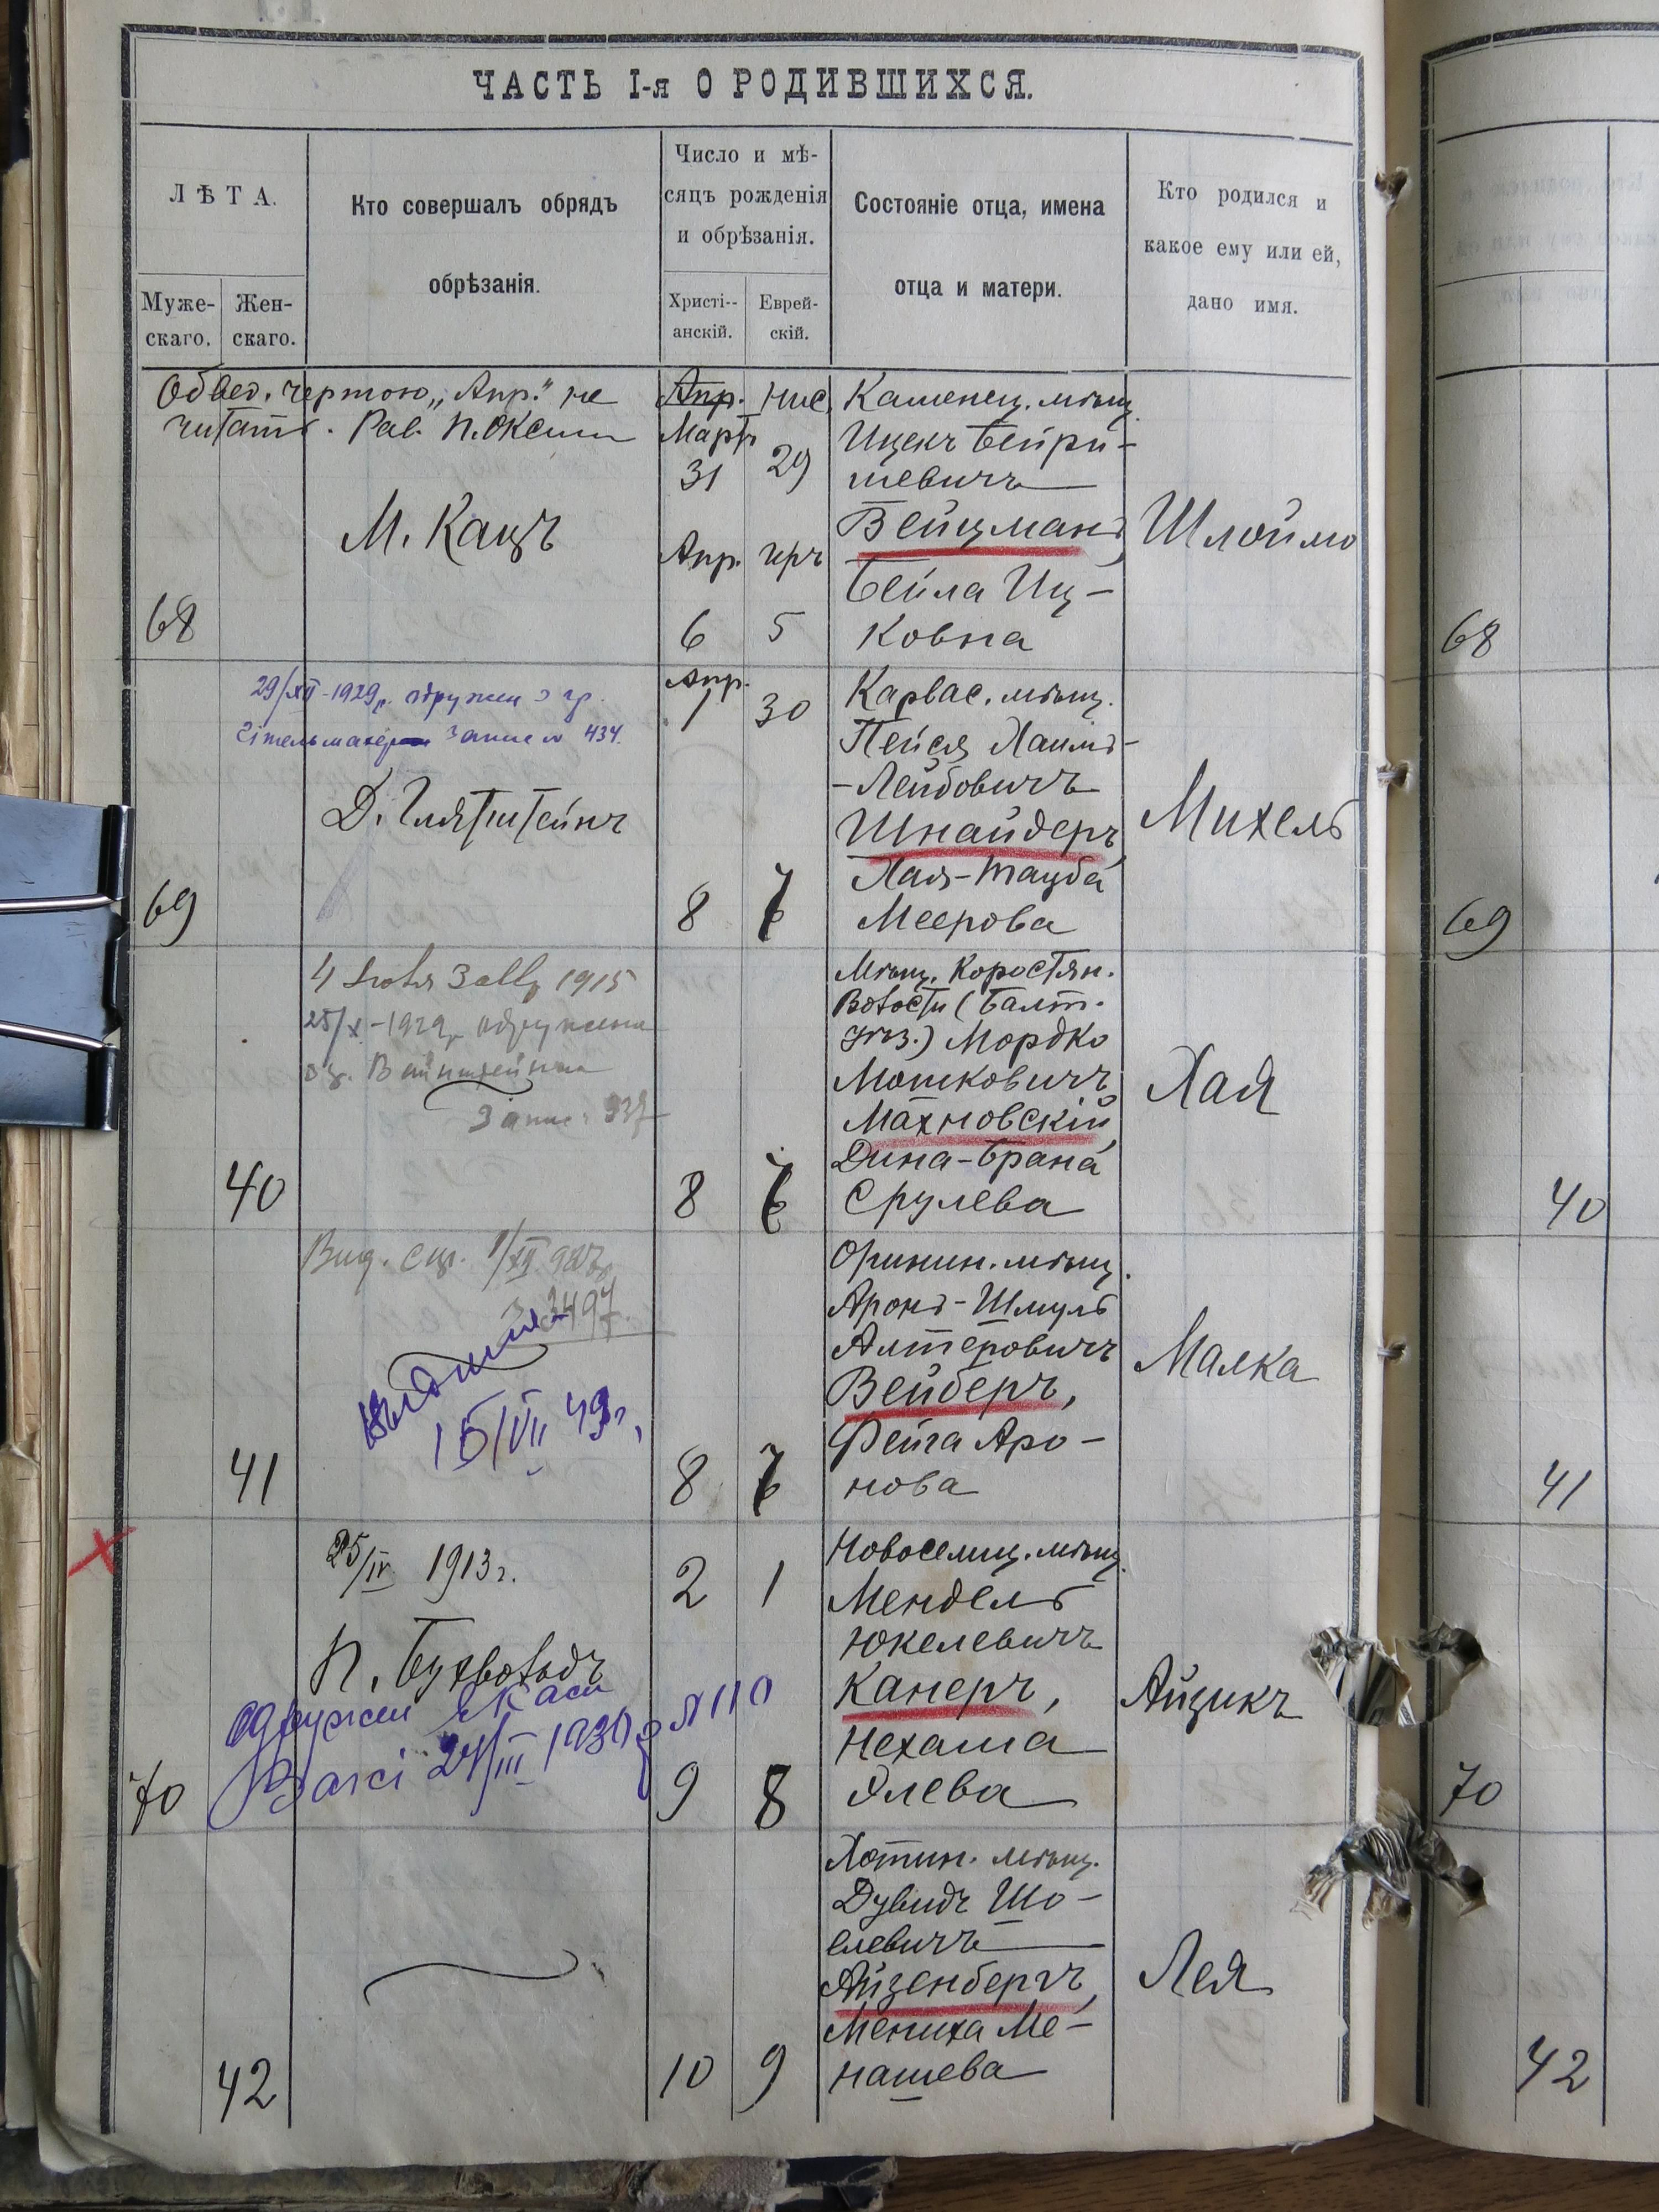 ЧАСТЬ I-я О РОДИВШИХСЯ.
ЛѢТА.
Муже-
скаго.
Жен-
скаго.
Кто совершалъ обрядъ
обрѣзанія.
Число и мѣ-
сяцъ рожденія
и обрѣзанія.
Христі--
анскій.
Еврей-
скій.
Состояніе отца, имена
отца и матери.
Кто родился и
какое ему или ей,
дано имя.
Обвед. чертою „Апр." не
читать. Рав.
М. Кацъ
68
Апр. Нис.
Мартъ
31 29
Апр. Iръ
6 5
Каменец. мѣщ.
Ицекъ Бейри-
шевичъ
Вейцманъ,
Бейла Иц-
ковна
Шлоймо
68
29/XII-1929р. одружен з гр.
Запис № 434.
Д. Глятштейнъ
69
Апр.
1 30
8 7
Карвас. мѣщ.
Пейся Хаимъ-
-Лейбовичъ
Шнайдеръ,
Хая-Тауба
Меерова
Михель
69
1915
25/X-1929р. одружена
з гр. Вайнштейном
Запис
40
8 7
Мѣщ. Коростян.
Волости (Балт.
уѣз.) Мордко
Мошковичъ
Махновскій,
Дина-Брана
Срулева
Хая
40
Вид.
3497
15/VII 49г.
41
8 7
Оринин. мѣщ.
Аронъ-Шмуль
Алтеровичъ
Вейберъ,
Фейга Аро-
нова
Малка
41
25/IV 1913г.
П. Бухвольдъ
одружен
Загсі 24/III
№ 110
70
2 1
9 8
Новоселиц. мѣщ.
Мендель
Юкелевичъ
Канеръ,
Нехама
Элева
Айзикъ
70
42
10 9
Хотин. мѣщ.
Дувидъ Шо-
елевичъ
Айзенбергъ,
Мениха Ме-
нашева
Лея
42